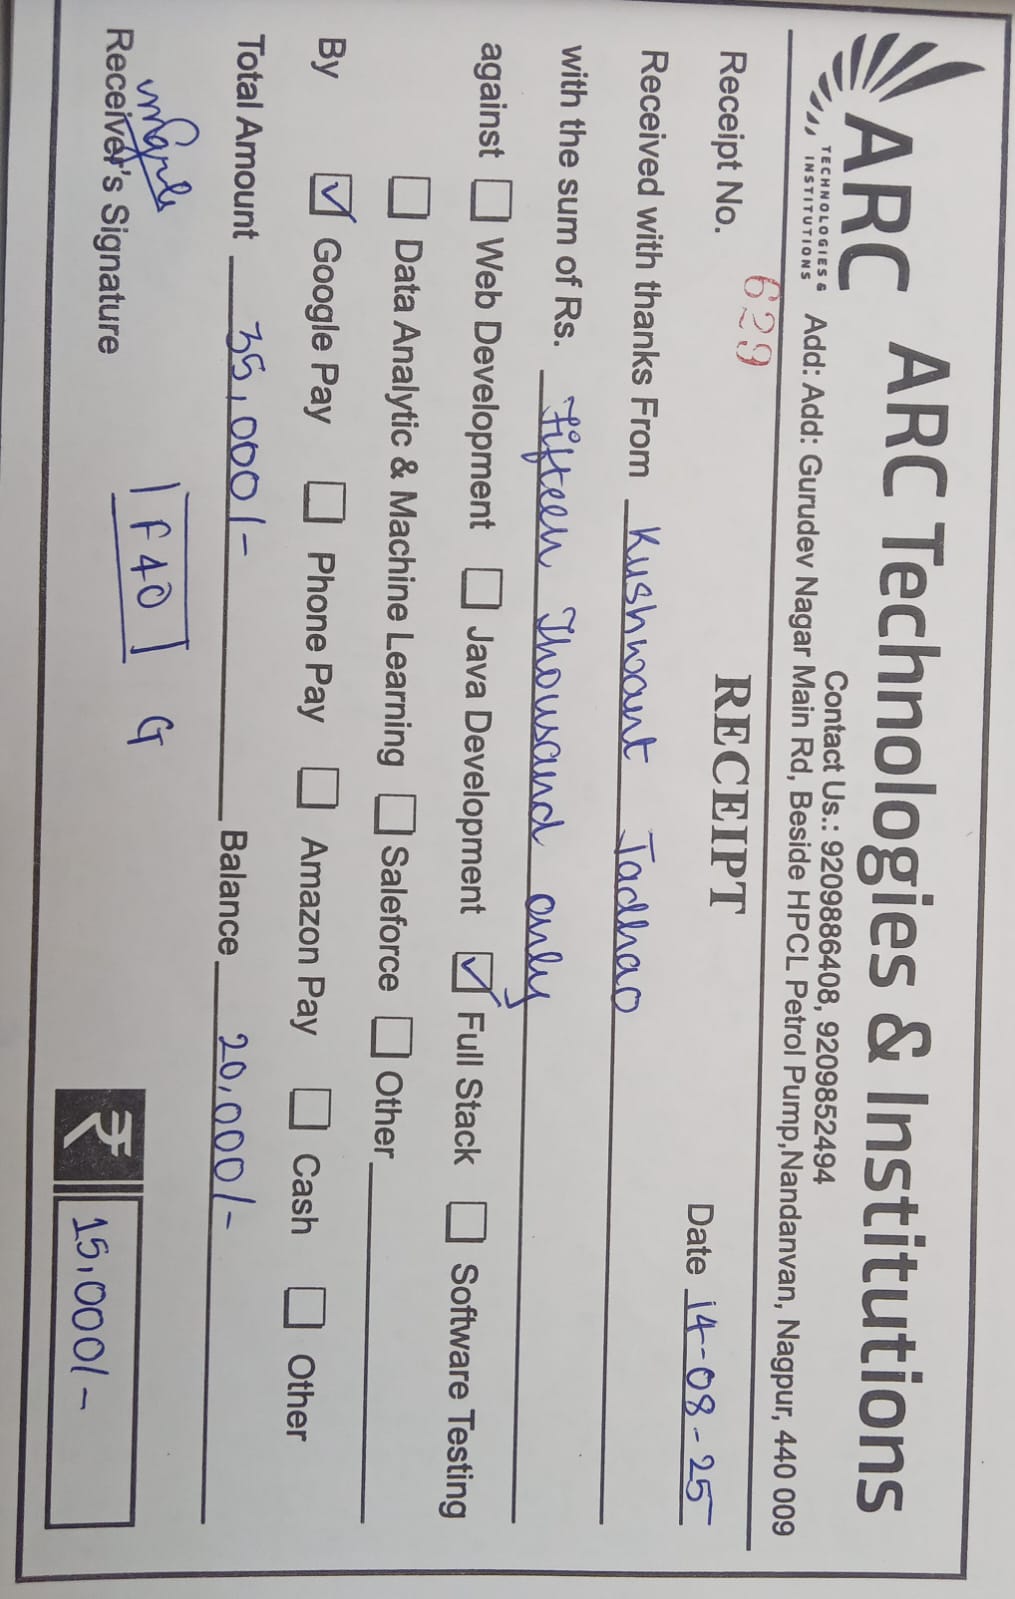 ARC
TECHNOLOGIES &
INSTITUTIONS
ARC Technologies & Institutions
Contact Us.: 9209886408, 9209852494
Add: Add: Gurudev Nagar Main Rd, Beside HPCL Petrol Pump,Nandanvan, Nagpur, 440 009
Receipt No. 629 RECEIPT Date 14-08-25
Received with thanks From Kushwant Jadhao
with the sum of Rs. Fifteen Thousand only
against ☐ Web Development ☐ Java Development ☑ Full Stack ☐ Software Testing
☐ Data Analytic & Machine Learning ☐ Saleforce ☐ Other
By ☑ Google Pay ☐ Phone Pay ☐ Amazon Pay ☐ Cash ☐ Other
Total Amount 35,000/- Balance 20,000/-
F40 G ₹ 15,000/-
Receiver's Signature